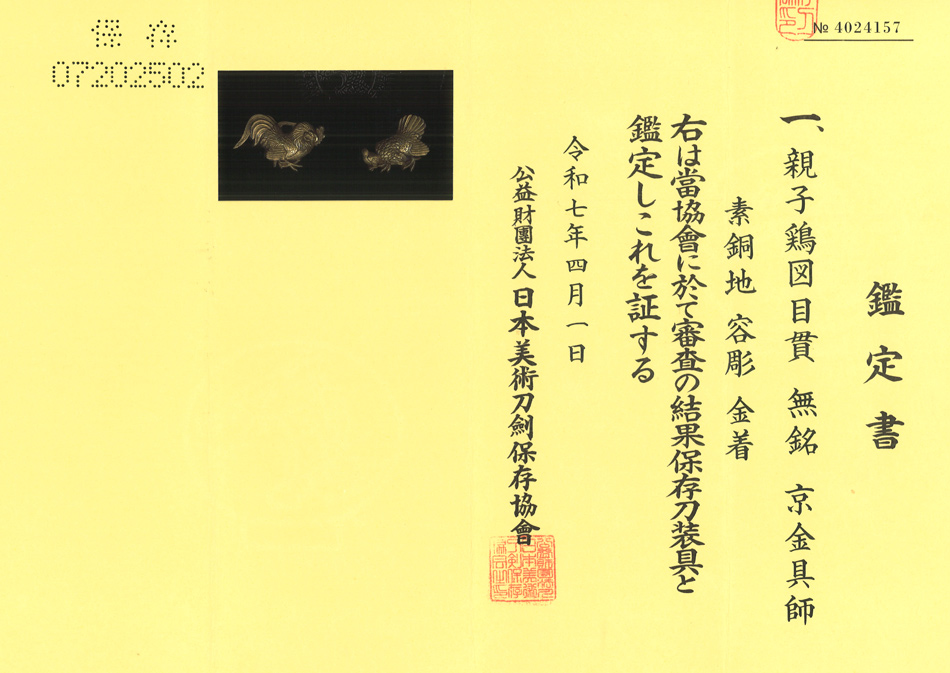 № 4024157
鑑定書
一、親子鶏図目貫 無銘 京金具師
素銅地 容彫 金着
右は當協會に於て審査の結果保存刀装具と
鑑定しこれを証する
令和七年四月一日
公益財團法人 日本美術刀劍保存協會
保存
07202502